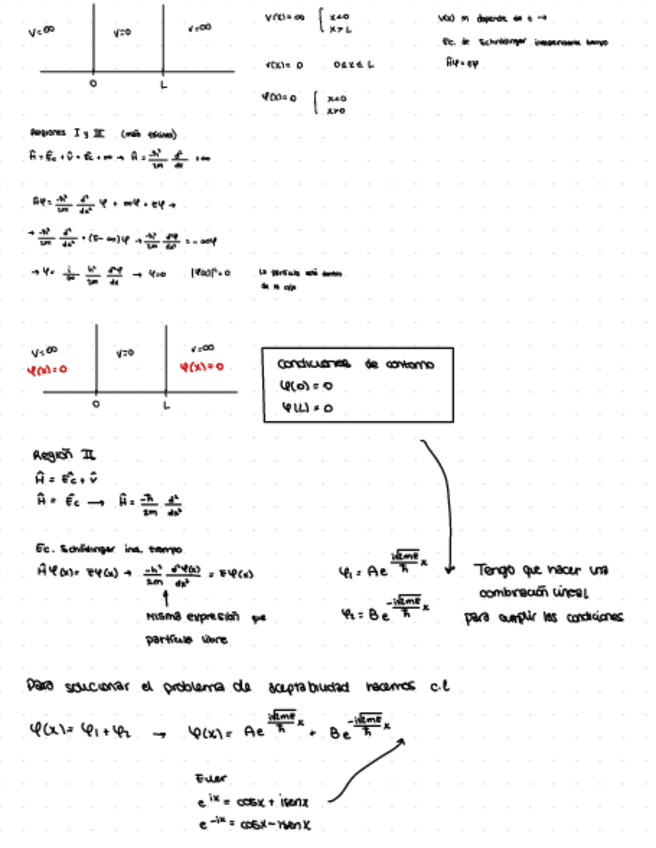 V=∞ V=0 V=∞
0 L
V(x)=∞ { x<0
x>L
V(x)=0 0≤x≤L
φ(x)=0 { x<0
x>0
V(x) no depende de t →
Ec. de Schrödinger independiente tiempo
Ĥφ=Eφ
Regiones I y III (más fáciles)
Ĥ=Êc+V̂=Êc+∞ → Ĥ=-ħ²/2m d²/dx +∞
Ĥφ=-ħ²/2m d²/dx² φ + ∞φ=Eφ →
→ -ħ²/2m d²/dx² =(E-∞)φ → -ħ²/2m d²φ/dx² =-∞φ
→ φ= 1/∞ ħ²/2m d²φ/dx → φ=0 |φ(x)|²=0
La partícula está dentro
de la caja
V=∞ V=0 V=∞
φ(x)=0 φ(x)=0
0 L
Condiciones de contorno
φ(0)=0
φ(L)=0
Región II
Ĥ = Êc+V̂
Ĥ = Êc → Ĥ= -ħ/2m d²/dx²
Ec. Schrödinger ind. tiempo
Ĥφ(x)= Eφ(x) → -ħ²/2m d²φ(x)/dx² = Eφ(x)
Misma expresión que
partícula libre
φ₁ = Ae^(i√2mE/ħ x)
φ₂ = Be^(-i√2mE/ħ x)
Tengo que hacer una
combinación lineal
para cumplir las condiciones
Para solucionar el problema de aceptabilidad hacemos c.l
φ(x)= φ₁+φ₂ → φ(x)= Ae^(i√2mE/ħ x) + Be^(-i√2mE/ħ x)
Euler
e^ix = cosx + isenx
e^-ix = cosx - isenx